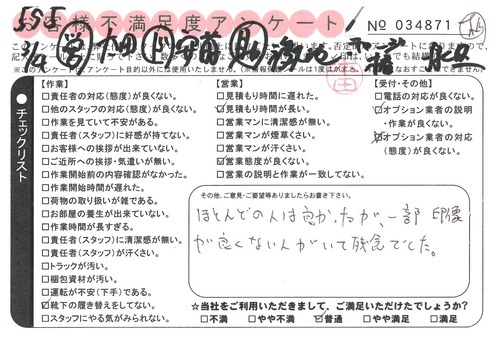 客様不満足度アンケート
No 034871
チェックリスト
【作業】
□責任者の対応(態度)が良くない。
☑他のスタッフの対応(態度)が良くない。
□作業を見ていて不安がある。
□責任者(スタッフ)に好感が持てない。
□お客様への挨拶が出来ていない。
□ご近所への挨拶・気遣いが無い。
□作業開始前の内容確認がなかった。
□作業開始時間が遅れた。
□荷物の取り扱いが雑である。
□お部屋の養生が出来ていない。
□作業時間が長すぎる。
□責任者(スタッフ)に清潔感が無い。
□責任者(スタッフ)が汗くさい。
□トラックが汚い。
□梱包資材が汚い。
□運転が不安(下手)である。
☑靴下の履き替えをしてない。
□スタッフにやる気がみられない。
【営業】
□見積もり時間に遅れた。
☑見積もり時間が長い。
□営業マンに清潔感が無い。
□営業マンが煙草くさい。
□営業マンが汗くさい。
☑営業態度が良くない。
□営業の説明と作業が一致してない。
【受付・その他】
□電話の対応が良くない。
☑オプション業者の説明
・作業が良くない。
☑オプション業者の対応
(態度)が良くない。
その他、ご意見・ご要望等ありましたらお書き下さい。
ほとんどの人は良かったが、一部 印象
が良くない人がいて残念でした。
☆当社をご利用いただきまして、ご満足いただけたでしょうか?
□不満 □やや不満 ☑普通 □やや満足 □満足